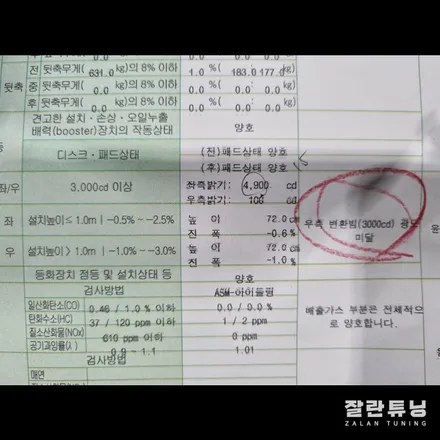 전 뒷축무게( 631.0 kg)의 8% 이하 1.0 % ( 183.0 177.0 kg)
뒷축 중 뒷축무게( 0.0 kg)의 8% 이하 0.0 % ( 0.0 : 0.0 kg)
후 뒷축무게( 0.0 kg)의 8% 이하 0.0 % ( 0.0 : 0.0 kg)
견고한 설치·손상·오일누출
배력(booster)장치의 작동상태 양호
디스크·패드상태 (전)패드상태 양호
(후)패드상태 양호
좌/우 3,000cd 이상 좌측밝기: 4,900 cd
우측밝기: 100 cd
우측 변환빔(3000cd) 광도
미달
좌 설치높이≤ 1.0m | -0.5% ~ -2.5% 높 이 72.0 cm
진 폭 -0.6 %
우 설치높이> 1.0m | -1.0% ~ -3.0% 높 이 72.0 cm
진 폭 -1.0 %
등화장치 점등 및 설치상태 등 양호
검사방법 ASM-아이들링
일산화탄소(CO) 0.46 / 1.0 % 이하 0.0 / 0.0 %
탄화수소(HC) 37 / 120 ppm 이하 1 / 2 ppm
질소산화물(NOx) 610 ppm 이하 0 ppm
공기과잉률(λ) 0.9 ~ 1.1 1.01
배출가스 부분은 전체적으
로 양호합니다.
검사방법
매연
잘란튜닝
ZALAN TUNING